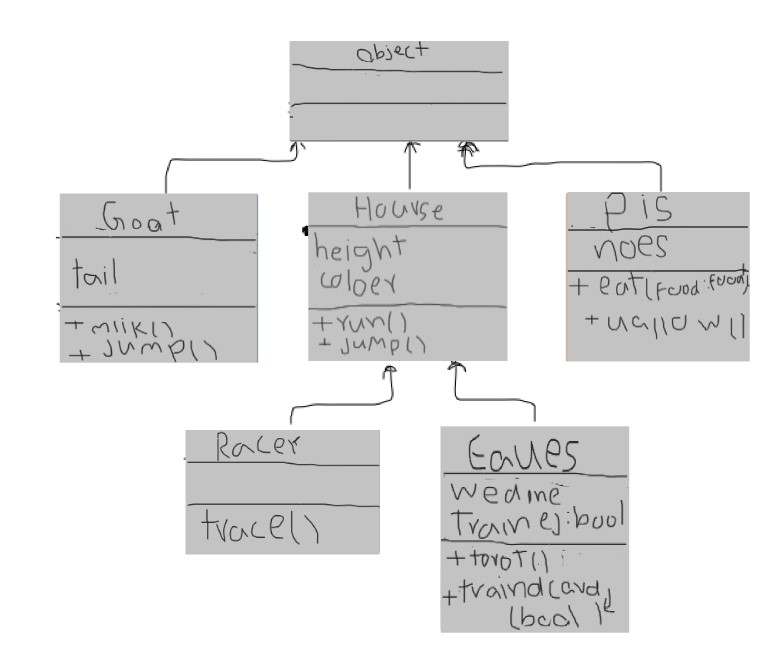 object
Goat
tail
+ milk()
+ jump()
Hourse
height
coloer
+ run()
+ jump()
pis
noes
+ eat(food:food)
+ wallow()
Racer
trace()
Eaues
wedine
Traine):bool
+ torot()
+ traind(card,
(bool)